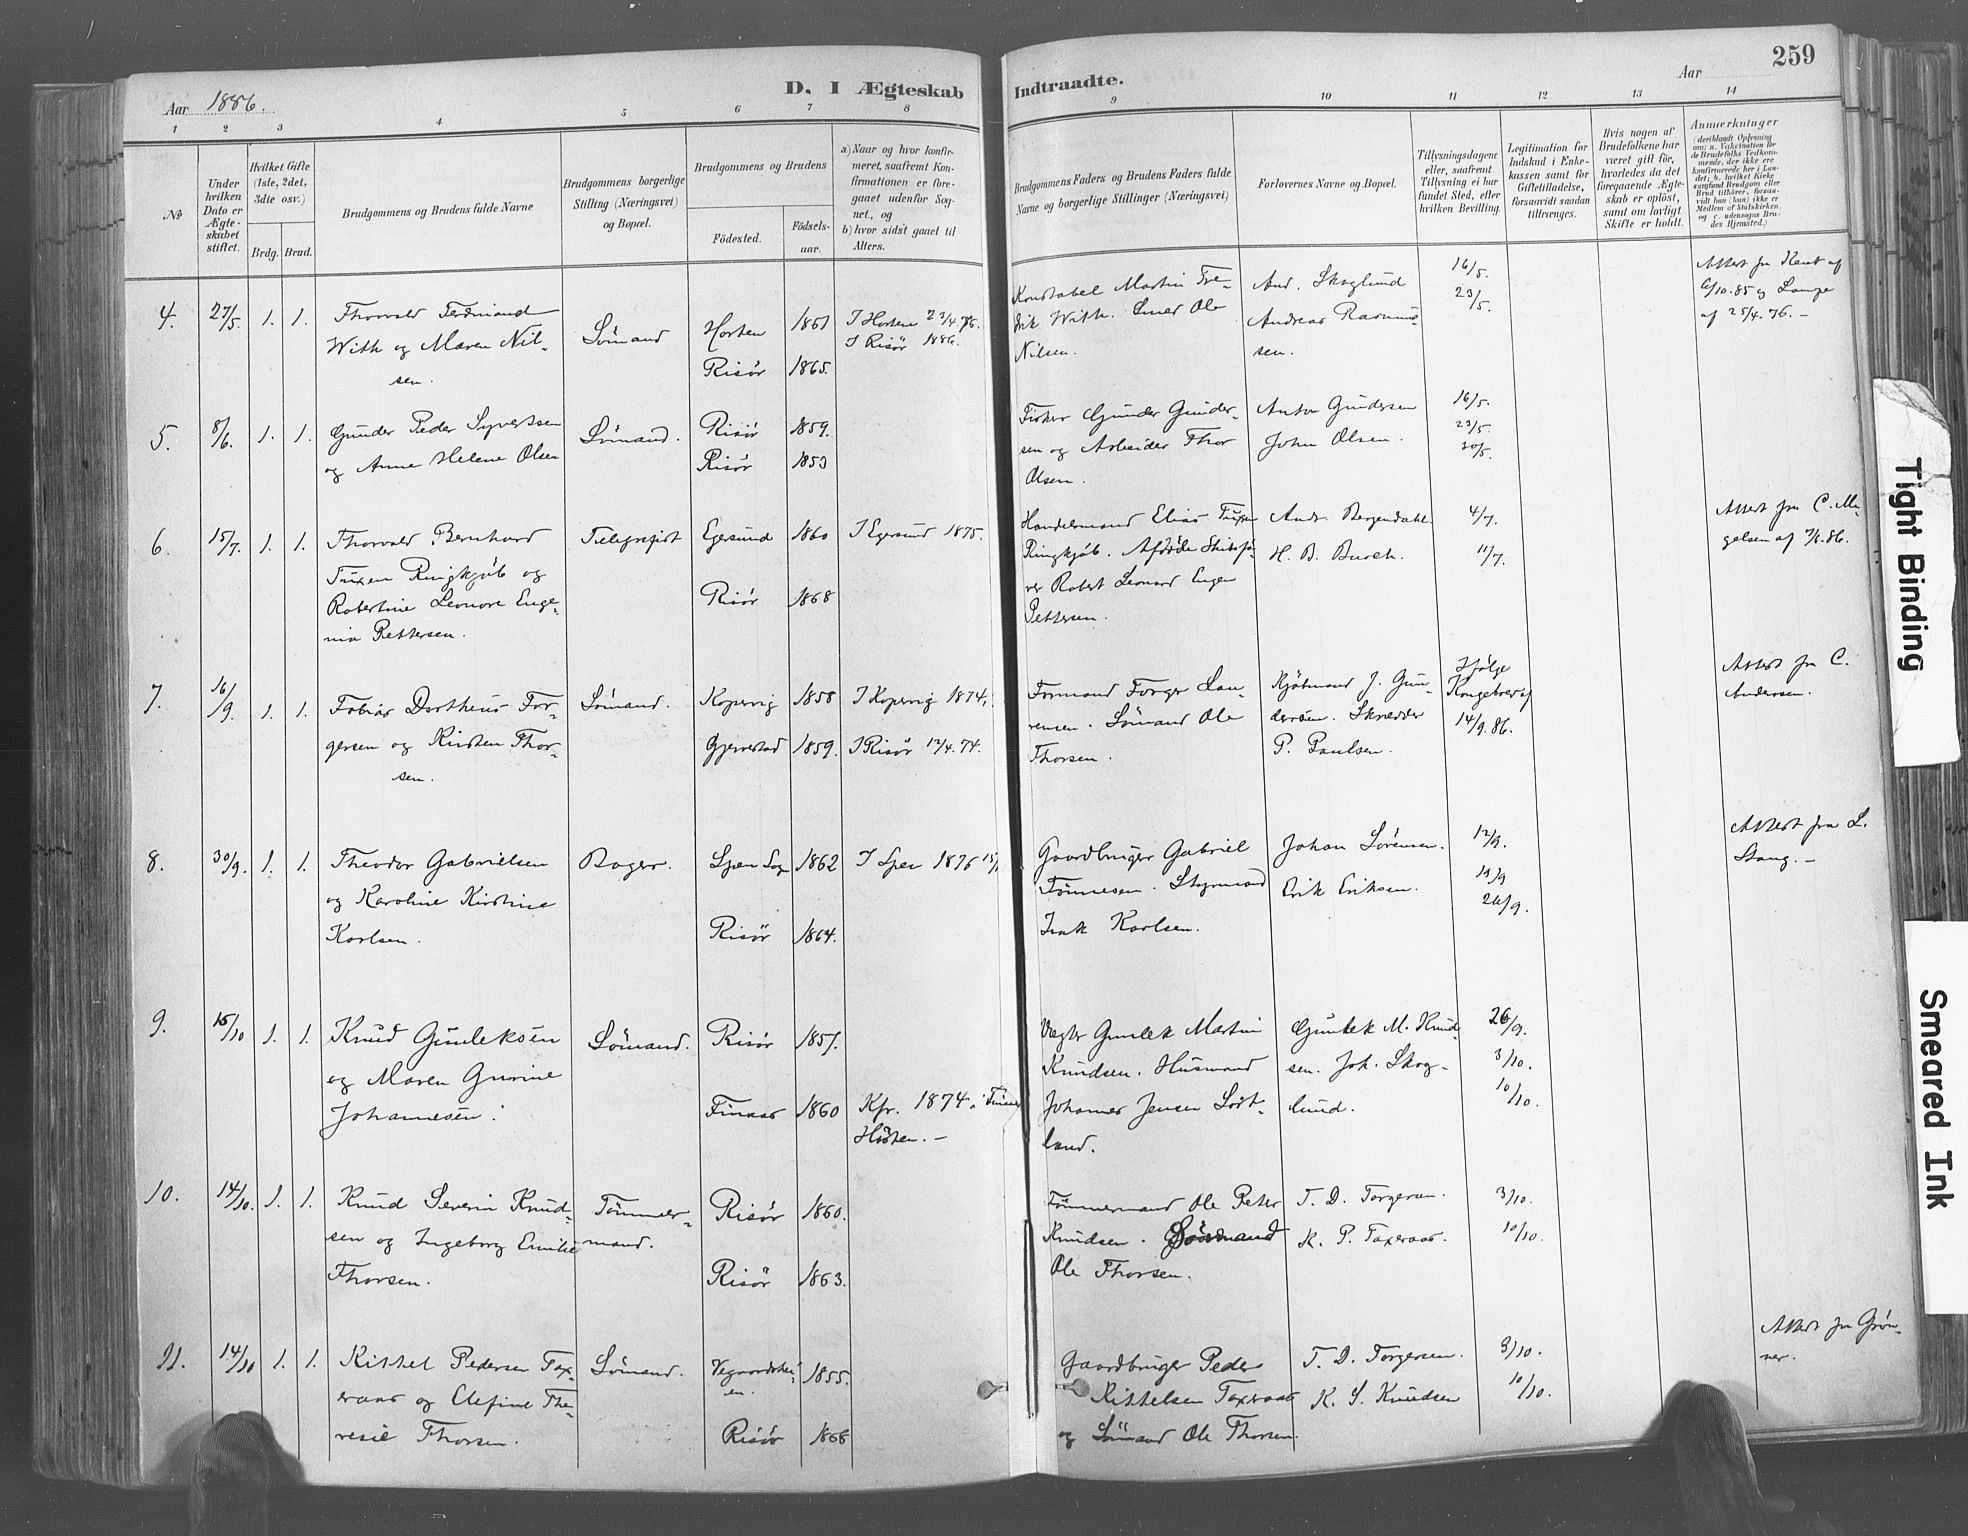 259
Aar 1886.
D. I Ægteskab Indtraadte.
Aar
1 2 3 4 5 6 7 8 9 10 11 12 13 14
No
Under hvilken Dato er Ægteskabet stiftet.
Hvilket Gifte (1ste, 2det, 3die osv.)
Brdg. Brud.
Brudgommens og Brudens fulde Navne
Brudgommens borgerlige Stilling (Næringsvei) og Bopæl.
Brudgommens og Brudens
Födested.
Födselsaar.
a) Naar og hvor konfirmeret, saafremt Konfirmationen er foregaaet udenfor Sognet, og
b) hvor sidst gaaet til Alters.
Brudgommens Faders og Brudens Faders fulde Navne og borgerlige Stillinger (Næringsvei)
Forlovernes Navne og Bopæl.
Tillysningsdagene eller, saafremt Tillysning ei har fundet Sted, efter hvilken Bevilling.
Legitimation for Indskud i Enkekassen samt for Giftetilladelse, forsaavidt saadan tiltrænges.
Hvis nogen af Brudefolkene har været gift för, hvorledes da det foregaaende Ægteskab er oplöst, samt om lovligt Skifte er holdt.
Anmærkninger
4. 27/5. 1. 1.
Thorvald Ferdinand
With og Maren Nil-
sen.
Sömand
Horten 1851
Risör 1865.
I Horten 23/4 76.
I Risör 1886.
Konstabel Martin Fre-
drik With. Ole
Nilsen.
And. Skoglund
Andreas Rasmus-
sen.
16/5.
23/5.
Attest fra
6/10.85 og
af 25/4.76. -
5. 8/6. 1. 1.
Gunder Peder Syvertsen
og Anne Helene Olsen
Sömand.
Risör 1859.
Risör 1853
Fisker Gunder Gunder-
sen og Arbeider Thor
Olsen.
Anton Gundersen
John Olsen.
16/5.
23/5.
30/5.
6. 15/7. 1. 1.
Thorvald Bernhard
Tuxen Ringkjöb og
Robertine Leonore Euge-
nia Pettersen.
Telegrafist
Egersund 1860
Risör 1868
I Egersund 1875.
Handelsmand Elias Tuxen
Ringkjöb. Afdöde Skibsfö-
rer Robert Leonard Eugen
Pettersen.
Andr. Bergendahl.
H. B. Burch.
4/7.
11/7.
Attest fra C. Ma-
gelsen af 86.
7. 16/9. 1. 1.
Tobias Dortheus Tor-
gersen og Kirsten Thor-
sen.
Sömand.
Kopervig 1858
Gjerrestad 1859.
I Kopervig 1874,
I Risör 12/4.74.
Formand Torger Lau-
rensen. Sömand Ole
Thorsen.
Kjöbmand J. Gun-
dersen. Skrædder
P. Paulsen.
Ifölge
Kongebrev af
14/9.86.
Attest fra C.
Andersen.
8. 30/9. 1. 1.
Theodor Gabrielsen
og Karoline Kirstine
Karlsen.
Bager.
1862
Risör 1864.
Gaardbruger Gabriel
Tönnesen. Styrmand
Isak Karlsen.
Johan Sörensen.
Erik Eriksen.
12/9.
19/9
26/9.
Attest fra L.
Stang. -
9. 15/10 1. 1.
Knud Gunleksen
og Maren Gurine
Johannesen.
Sömand.
Risör 1857.
1860
Kfr. 1874
Hösten. -
Vægter Gunlek Martin
Knudsen. Husmand
Johannes Jensen
land.
Gunlek M. Knud-
sen. Joh. Skog-
lund.
26/9.
3/10.
10/10.
10. 14/10. 1. 1.
Knud Severin Knud-
sen og Ingeborg Emilie
Thorsen.
Tömmer-
mand.
Risör 1860.
Risör 1863.
Tömmermand Ole Peter
Knudsen. Sömand
Ole Thorsen.
T. D. Torgersen.
K. P. Taxeraas.
3/10.
10/10.
11. 14/10 1. 1.
Kittel Pedersen Tax-
eraas og Elefine The-
resie Thorsen.
Sömand.
Vegaardshei-
en. 1855.
Risör 1866
Gaardbruger Peder
Kittelsen Taxeraas
og Sömand Ole Thorsen.
T. D. Torgersen.
K. S. Knudsen
3/10.
10/10.
Attest fra Grön-
ner.
Tight Binding
Smeared Ink